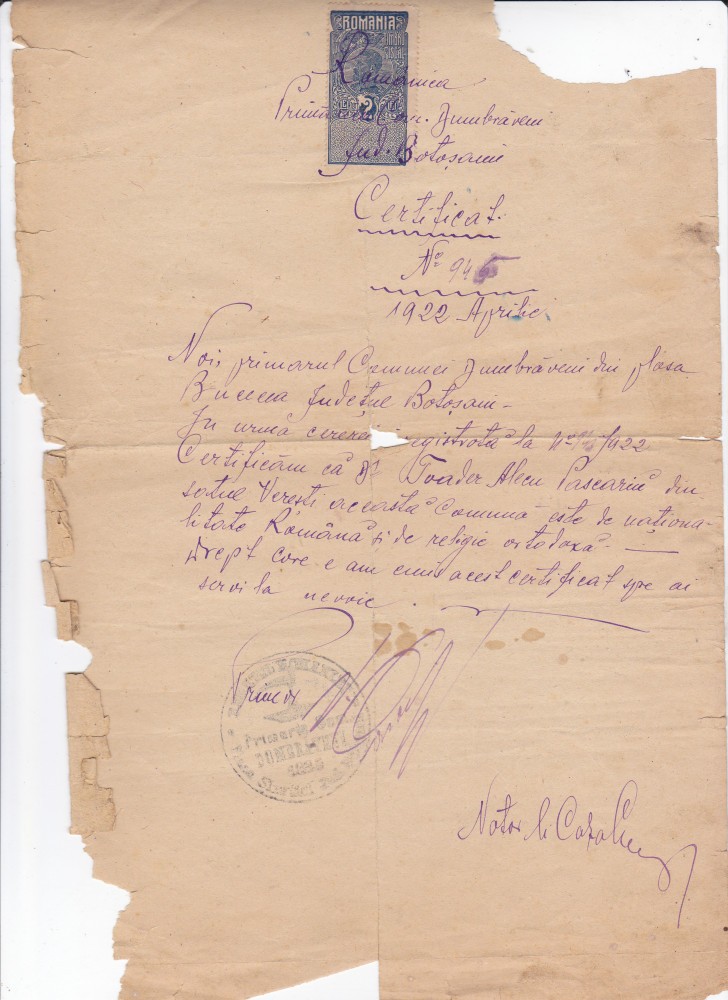 ROMANIA
TIMBRU
FISCAL
2
România
Primăria Com. Dumbrăveni
Jud. Botoșani
Certificat.
No 945
1922 Aprilie
Noi, primarul Comunei Dumbrăveni din plasa
Bucecea Județul Botoșani -
În urma cererei registrată la No /922
Certificăm că Dl Toader Alecu Pascariu din
satul Verești această Comună este de naționa-
litate Română și de religie ortodoxă. —
Drept care e am emis acest certificat spre ai
servi la nevoie.
Primar
Primaria
DUMBRAVENI
Notar